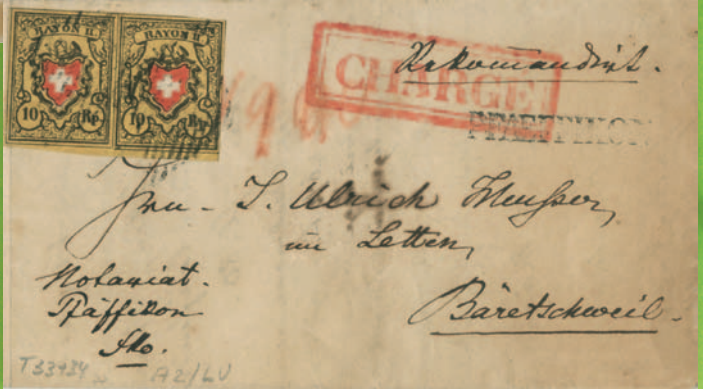 RAYON II RAYON II
10 Rp. 10 Rp.
CHARGÉ
Rekomandirt.
PFAEFFIKON
J. Ulrich
im Letten,
Bäretschweil.
Notariat.
Pfäffikon
T33934
A2/LU